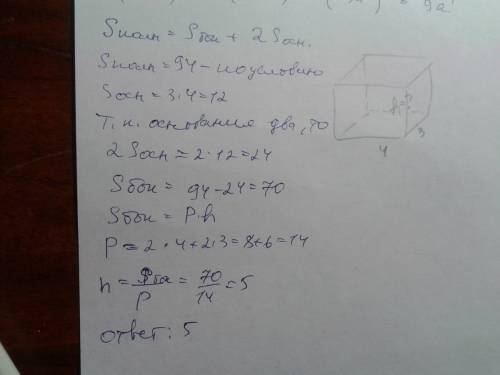 = 9a
Sполн = Sбок + 2Sосн.
Sполн = 94 – по условию
Sосн = 3·4=12
Т.к. основания два, то
2Sосн = 2·12=24
Sбок = 94-24=70
Sбок = P·h
P = 2·4+2·3=8+6=14
h = Sбок/P = 70/14 = 5
Ответ: 5
h
3
4